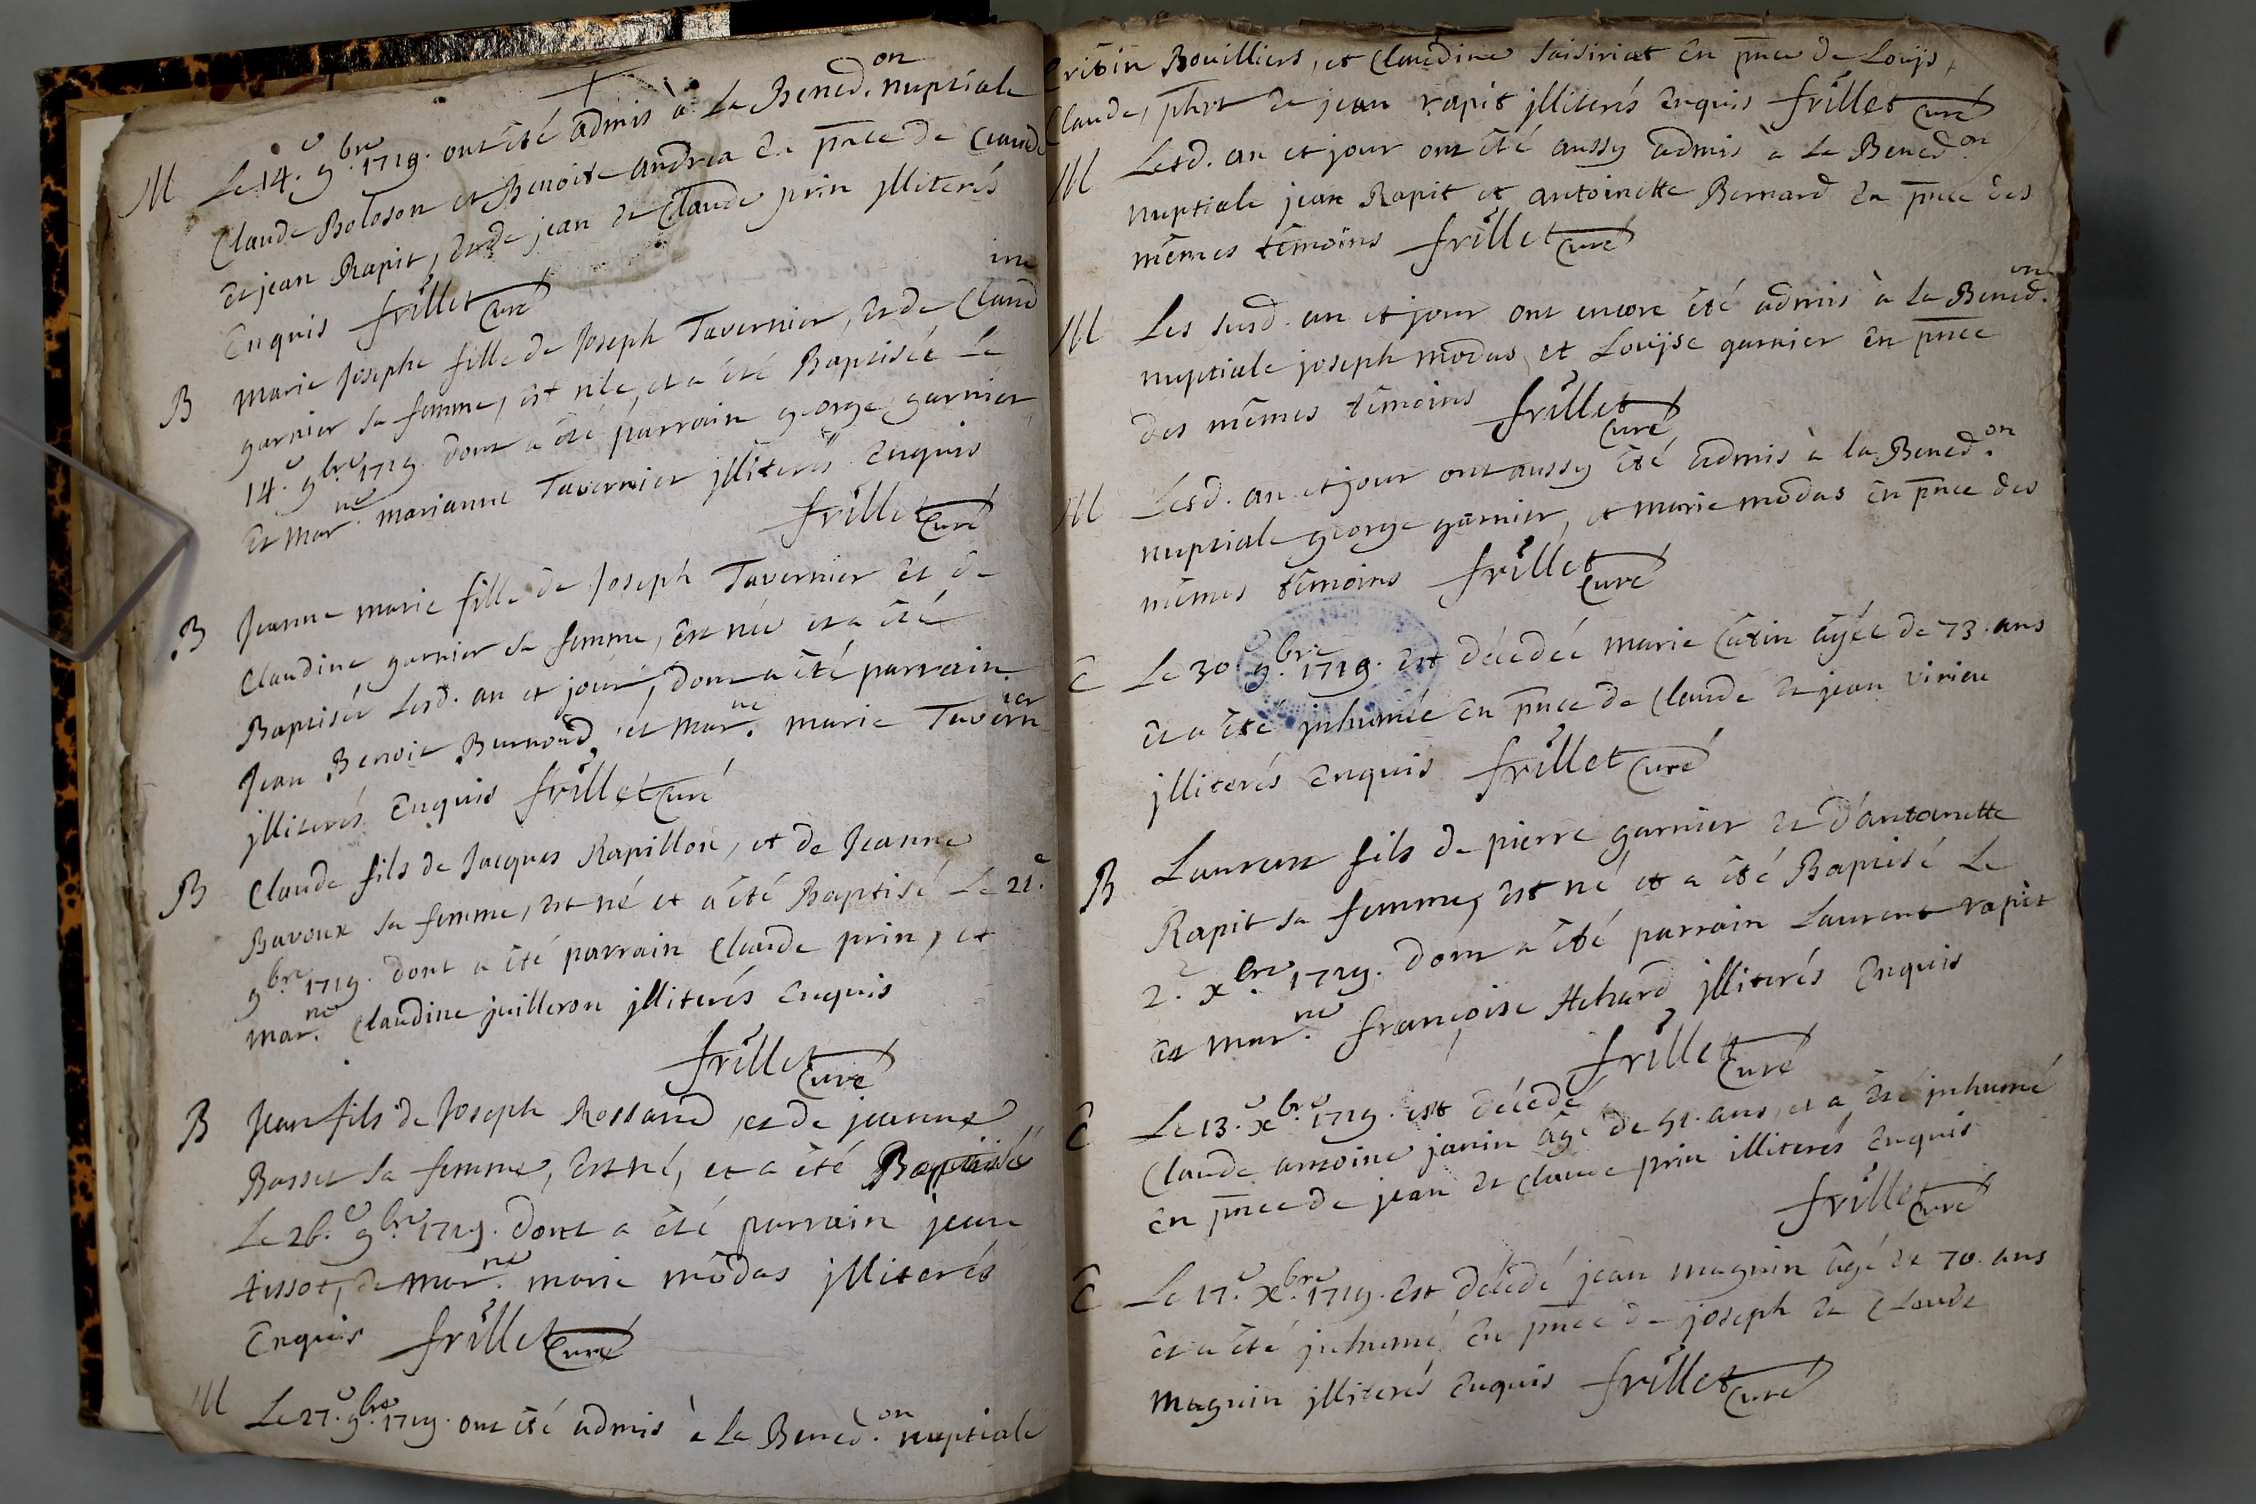 M Le 14.e 9.bre 1719. ont été admis à La Bened.on nuptiale
Claude Boloson et Benoite andrea En pñce de Claude
et jean Rapit, et de jean et Claude prin jlliterés
Enquis frillet Curé
B Marie Josephe fille de Joseph Tavernier, et de Claudine
garnier sa femme, est née, et a été Baptisée Le
14.e 9.bre 1719. dont a été parrain george garnier
et Mar.ne marianne Tavernier jlliterés Enquis
frillet Curé
B Jeanne marie fille de Joseph Tavernier et de
Claudine garnier sa femme, est née et a été
Baptisée Lesd. an et jour, dont a été parrain
Jean Benoit Burnoud et Mar.ne marie Tavernier
jlliterés Enquis frillet Curé
B Claude fils de Jacques Rapillon, et de Jeanne
Bavoux sa femme, est né et a été Baptisé Le 21.e
9.bre 1719. dont a été parrain Claude prin, et
Mar.ne Claudine juilleron jlliterés Enquis
frillet Curé
B Jean fils de Joseph Rossand, et de jeanne
Basset sa femme, est né, et a été Baptisé
Le 26.e 9.bre 1719. dont a été parrain jean
tissot, et Mar.ne marie modas jlliterés
Enquis frillet Curé
M Le 27.e 9.bre 1719. ont été admis à La Bened.on nuptiale
Bouilliers, et Claudine En pñce de Louys,
Claude, et de jean rapit jlliterés Enquis frillet Curé
M Lesd. an et jour ont été aussy admis à La Bened.on
nuptiale jean Rapit et antoinette Bernard En pñce des
mêmes témoins frillet Curé
M Les susd. an et jour ont encore été admis à La Bened.on
nuptiale joseph modas et Louyse garnier En pñce
des mêmes témoins frillet Curé
M Lesd. an et jour ont aussy été admis à la Bened.on
nuptiale george garnier, et marie modas En pñce des
mêmes témoins frillet Curé
C Le 30.e 9.bre 1719. est décédée marie Catin âgée de 73. ans
et a été jnhumée En pñce de Claude et jean virieu
jlliterés Enquis frillet Curé
B Laurent fils de pierre garnier et d'antoinette
Rapit sa femme, est né et a été Baptisé Le
2.e x.bre 1719. dont a été parrain Laurent rapit
et Mar.ne françoise Achard jlliterés Enquis
frillet Curé
C Le 13.e x.bre 1719. est décédé
Claude antoine janin âgé de 51. ans, et a été jnhumé
en pñce de jean et Claude prin illiterés Enquis
frillet Curé
C Le 17.e x.bre 1719. est décédé jean magnin âgé de 70. ans
et a été jnhumé En pñce de joseph et Claude
magnin jlliterés Enquis frillet Curé